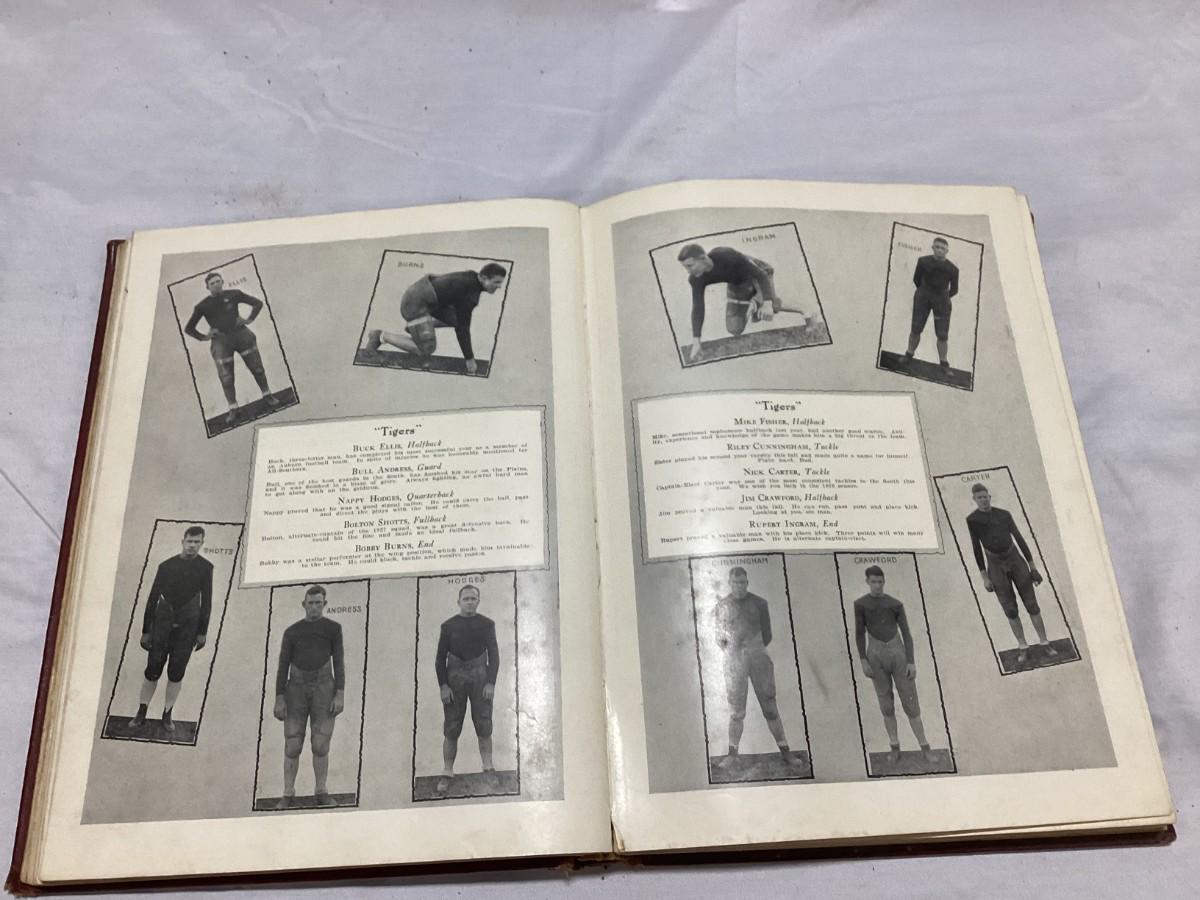 ELLIS
BURNS
"Tigers"
BUCK ELLIS, Halfback
Buck, three-letter man, has completed his most successful year as a member of
an Auburn football team. In spite of injuries he was honorably mentioned for
All-Southern.
BULL ANDRESS, Guard
Bull, one of the best guards in the South, has finished his star on the Plains,
and it was finished in a blaze of glory. Always fighting, an awful hard man
to get along with on the gridiron.
NAPPY HODGES, Quarterback
Nappy proved that he was a good signal caller. He could carry the ball, pass
and direct the plays with the best of them.
BOLTON SHOTTS, Fullback
Bolton, alternate-captain of the 1927 squad, was a great defensive back. He
could hit the line and made an ideal fullback.
BOBBY BURNS, End
Bobby was a stellar performer at the wing position, which made him invaluable
to the team. He could block, tackle and receive passes.
SHOTTS
ANDRESS
HODGES
INGRAM
FISHER
"Tigers"
MIKE FISHER, Halfback
Mike, sensational sophomore halfback last year, had another good season.
experience and knowledge of the game makes him a big threat on the team.
RILEY CUNNINGHAM, Tackle
played his second year varsity this fall and made quite a name for himself.
Fight hard,
NICK CARTER, Tackle
Captain-Elect Carter was one of the most consistent tackles in the South this
year. We wish you luck in the 1928 season.
JIM CRAWFORD, Halfback
Jim proved a valuable man this fall. He can run, pass, punt and place kick.
Looking at you, ole man.
RUPERT INGRAM, End
Rupert proved a valuable man with his place kick. Three points will win many
close games. He is alternate captain-elect.
CARTER
CUNNINGHAM
CRAWFORD